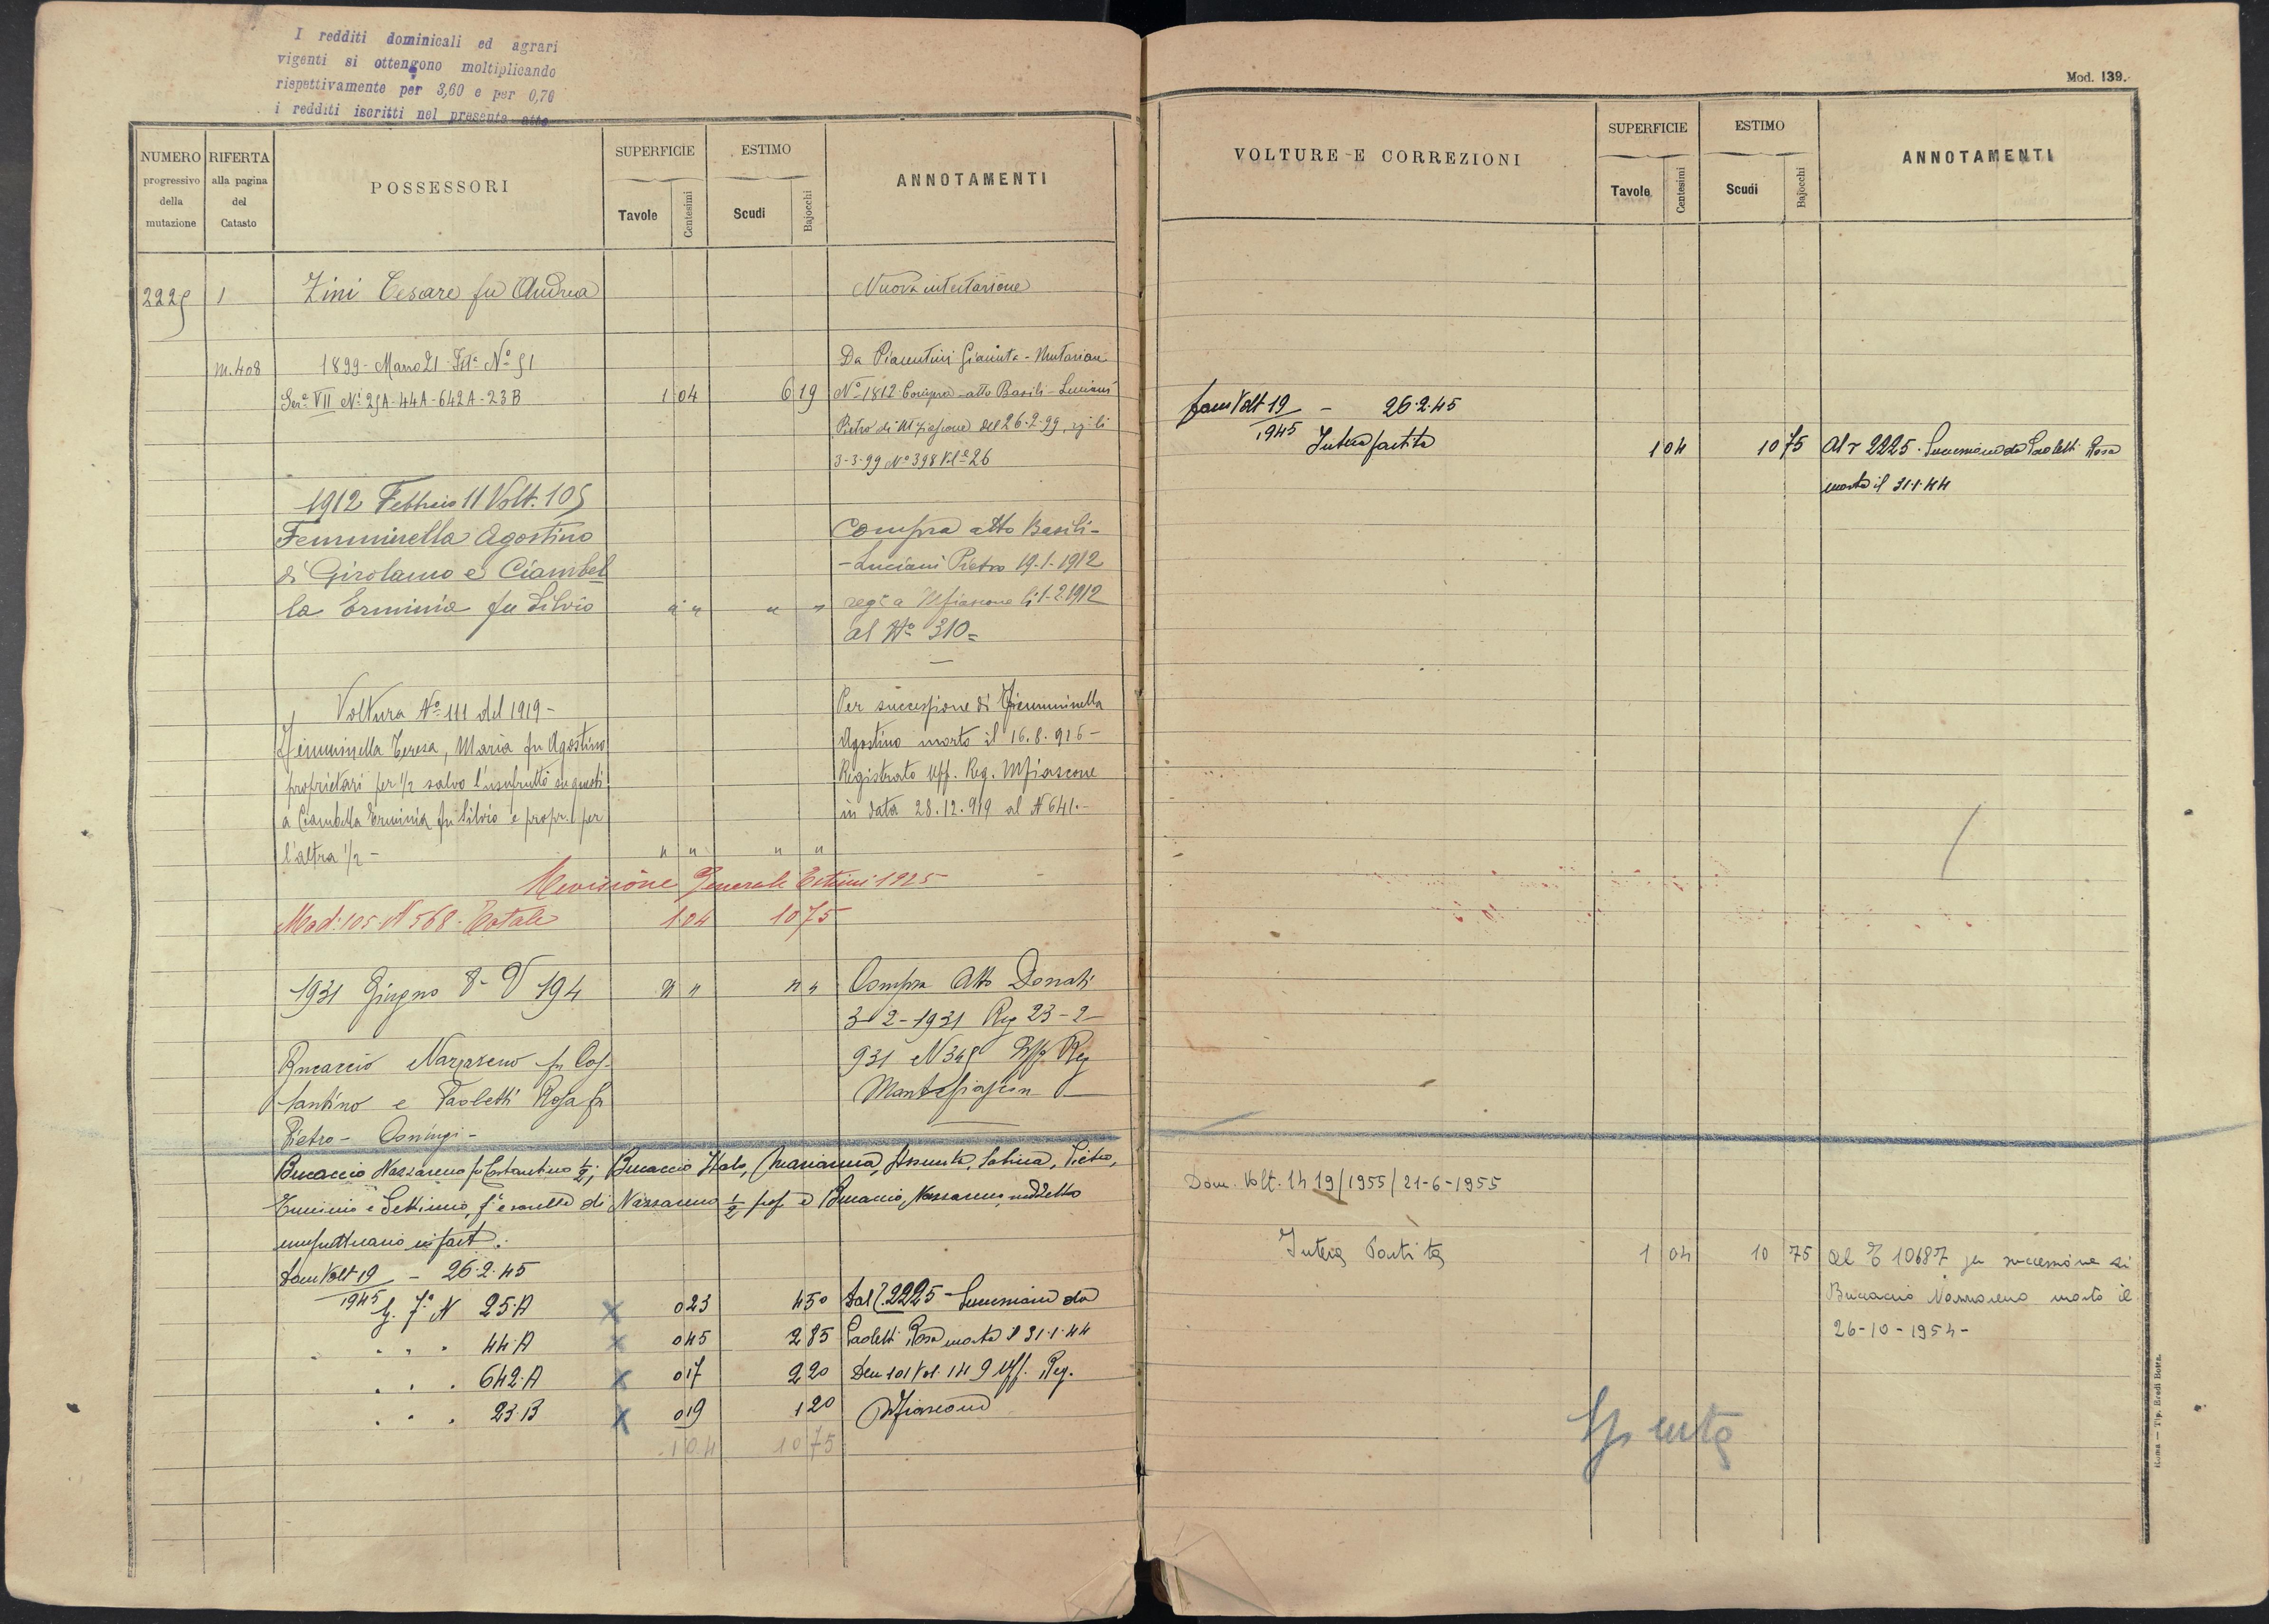 I redditi dominicali ed agrari
vigenti si ottengono moltiplicando
rispettivamente per 3,60 e per 0,70
i redditi iscritti nel presente atto
NUMERO
progressivo
della
mutazione
RIFERTA
alla pagina
del
Catasto
POSSESSORI
SUPERFICIE
Tavole
Centesimi
ESTIMO
Scudi
Bajocchi
ANNOTAMENTI
2225 1 Zini Cesare fu Andrea Nuova intestazione
M. 408 1899 - Marzo 21 - N° 51 Da Piacentini Giacinta - Mutazione
Sez. VII N° 25A - 44A - 642A - 23B 1 04 6 19 N° 1812 Compra - atto Basili - Luciani
Pietro di Mfiascone del 26-2-99,
3-3-99 N° 398 Vol. 26
1912 Febbraio 11 Volt. 105
Femminella Agostino Compra atto Basili -
di Girolamo e Ciambel - Luciani Pietro 19-1-1912
la Erminia fu Silvio " " " " reg. a Mfiascone li 1-2-1912
al N° 310 =
Voltura N° 111 del 1919 - Per successione di Femminella
Femminella Teresa, Maria fu Agostino Agostino morto il 16.8.916 -
proprietari per 1/2 salvo l'usufrutto su questi Registrato Uff. Reg. Mfiascone
a Ciambella Erminia fu Silvio e propr. per in data 28.12.919 al N 641. -
l'altra 1/2 - " " " "
Revisione Generale Estimi 1925
Mod. 105 - N 568 - Totale 1.04 10 75
1931 Giugno 8 - V 194 " " " " Compra Atto Donati
3-2-1931 Reg 23-2-
Bucaccio Nazzareno fu Cos- 931 Uff. Reg
tantino e Paoletti Rosa fu Montefiascon
Pietro - Coniugi -
Bucaccio Nazzareno fu Costantino 1/2; Bucaccio Italo, Marianna, Assunta, Sabina, Pietro,
e Settimio, f. e sorelle di Nazzareno 1/2 prop e Bucaccio Nazzareno suddetto
usufruttuario in part.
Dom Volt 19/1945 - 26.2.45
7° N 25.A x 0 23 4 50 Dal 2225 - Successione da
" " " 44.A x 0 45 2 85 Paoletti Rosa morta il 31.1.44
" " " 642.A x 0 17 2 20 Den 101 Vol. 149 Uff. Reg.
" " " 23.B x 0 19 1 20 Mfiascone
1 04 10 75
Mod. 139.
VOLTURE E CORREZIONI
SUPERFICIE
Tavole
Centesimi
ESTIMO
Scudi
Bajocchi
ANNOTAMENTI
Dom Volt 19/1945 - 26.2.45
Intera partita 1 04 10 75 Al 2225 - Successione da Paoletti Rosa
morta il 31.1.44
Dom. Volt. 1419/1955/21-6-1955
Intera Partita 1 04 10 75 Al 10687 per successione di
Bucaccio Nazzareno morto il
26-10-1954-
Spenta
Roma — Tip. Eredi Botta.